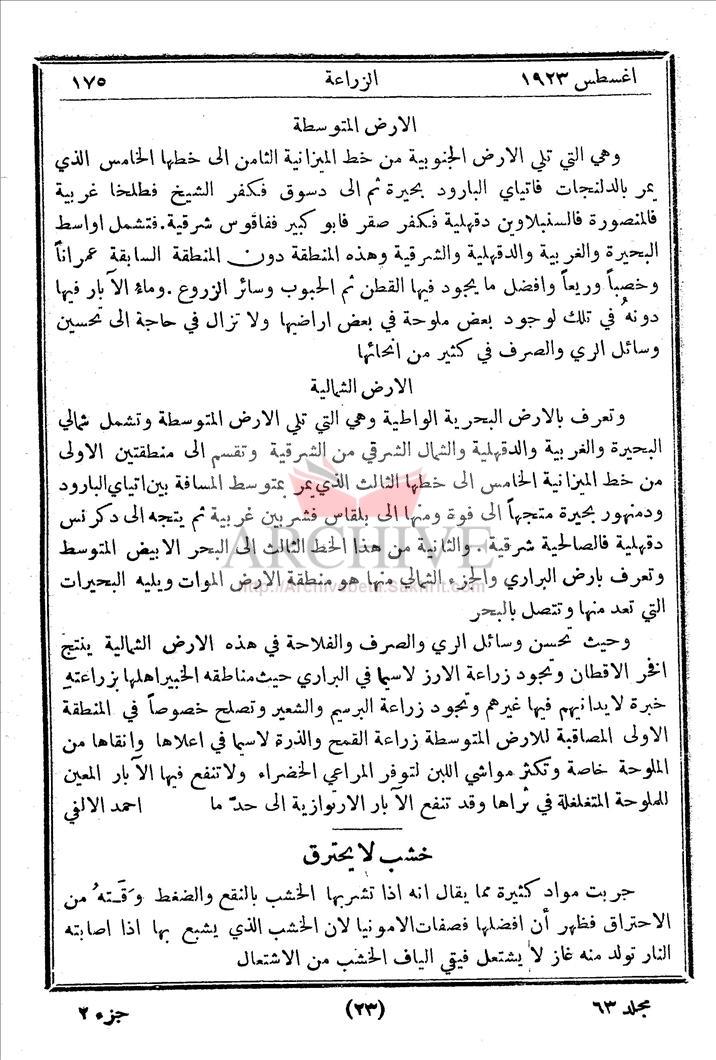 اغسطس ١٩٢٣ الزراعة ١٧٥
الارض المتوسطة
وهي التي تلي الارض الجنوبية من خط الميزانية الثامن الى خطها الخامس الذي
يمر بالدلنجات فاتياي البارود بحيرة ثم الى دسوق فكفر الشيخ فطلخا غربية
فالمنصورة فالسنبلاوين دقهلية فكفر صقر فابو كبير ففاقوس شرقية. فتشمل اواسط
البحيرة والغربية والدقهلية والشرقية وهذه المنطقة دون المنطقة السابقة عمراناً
وخصباً وريعاً وافضل ما يجود فيها القطن ثم الحبوب وسائر الزروع. وماء الآبار فيها
دونهُ في تلك لوجود بعض ملوحة في بعض اراضيها ولا تزال في حاجة الى تحسين
وسائل الري والصرف في كثير من انحائها
الارض الشمالية
وتعرف بالارض البحرية الواطية وهي التي تلي الارض المتوسطة وتشمل شمالي
البحيرة والغربية والدقهلية والشمال الشرقي من الشرقية وتقسم الى منطقتين الاولى
من خط الميزانية الخامس الى خطها الثالث الذي يمر بمتوسط المسافة بين اتياي البارود
ودمنهور بحيرة متجهاً الى فوة ومنها الى بلقاس فشربين غربية ثم يتجه الى دكرنس
دقهلية فالصالحية شرقية. والثانية من هذا الخط الثالث الى البحر الابيض المتوسط
وتعرف بارض البراري والجزء الشمالي منها هو منطقة الارض الموات ويليه البحيرات
التي تعد منها وتتصل بالبحر
وحيث تحسن وسائل الري والصرف والفلاحة في هذه الارض الشمالية ينتج
افخر الاقطان وتجود زراعة الارز لاسيما في البراري حيث مناطقه الخبير اهلها بزراعتهِ
خبرة لايدانيهم فيها غيرهم وتجود زراعة البرسيم والشعير وتصلح خصوصاً في المنطقة
الاولى المصاقبة للارض المتوسطة زراعة القمح والذرة لاسيما في اعلاها وانقاها من
الملوحة خاصة وتكثر مواشي اللبن لتوفر المراعي الخضراء ولاتنفع فيها الآبار المعين
للملوحة المتغلغلة في ثراها وقد تنفع الآبار الارتوازية الى حدّ ما احمد الالفي
خشب لا يحترق
جربت مواد كثيرة مما يقال انه اذا تشربها الخشب بالنقع والضغط وَقَتهُ من
الاحتراق فظهر أن افضلها فصفات الامونيا لان الخشب الذي يشبع بها اذا اصابته
النار تولد منه غاز لا يشتعل فيقي الياف الخشب من الاشتعال
مجلد ٦٣ (٢٣) جزء ٢
ARCHIVE
http://Archivebeta.Sakhrit.com